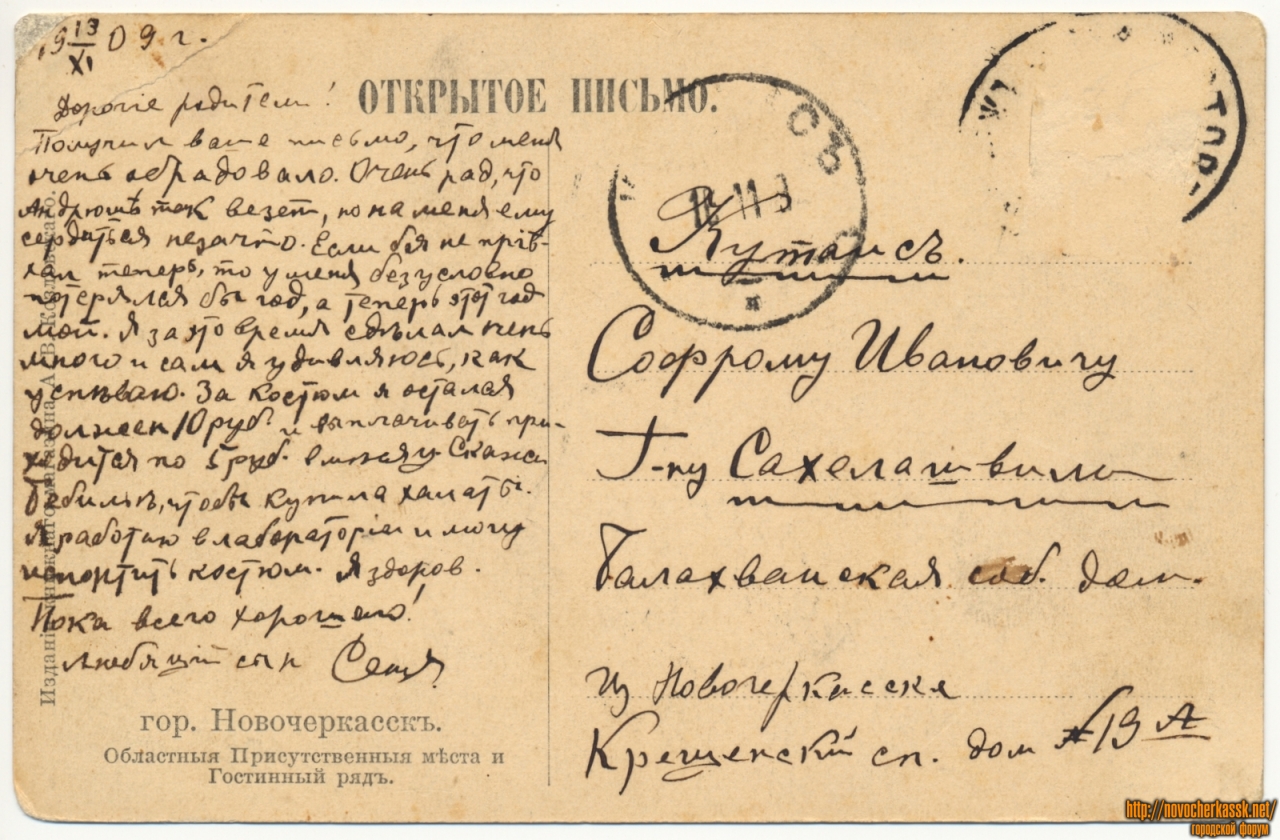 19 13/XI 09 г.
ОТКРЫТОЕ ПИСЬМО.
Дорогіе родители!
Получил ваше письмо, что меня
очень обрадовало. Очень рад, что
Андрюшѣ так везет, но на меня ему
сердиться незачто. Если бы я не приѣ-
хал теперь, то у меня безусловно
потерялся бы год, а теперь этот год
мой. Я за это время сдѣлал очень
много и сам я удивляюсь, как
успѣваю. За костюм я остался
должен 10 руб. и выплачивать при-
ходится по 5 руб. в месяц. Скажи
чтобы купила халаты.
Я работаю в лабораторіи и могу
испортить костюм. Я здоров.
Пока всего хорошего!
Любящій сын Сеня.
гор. Новочеркасскъ.
Областныя Присутственныя мѣста и
Гостинный рядъ.
Изданіе книжнаго магазина А. В.
Кутаисъ.
Софрому Ивановичу
Г-ну Сахелашвили
Балахванская соб. дом.
Из Новочеркасска
Крещенский сп. дом № 19 А
СЪ
11
http://novocherkassk.net/
городской форум